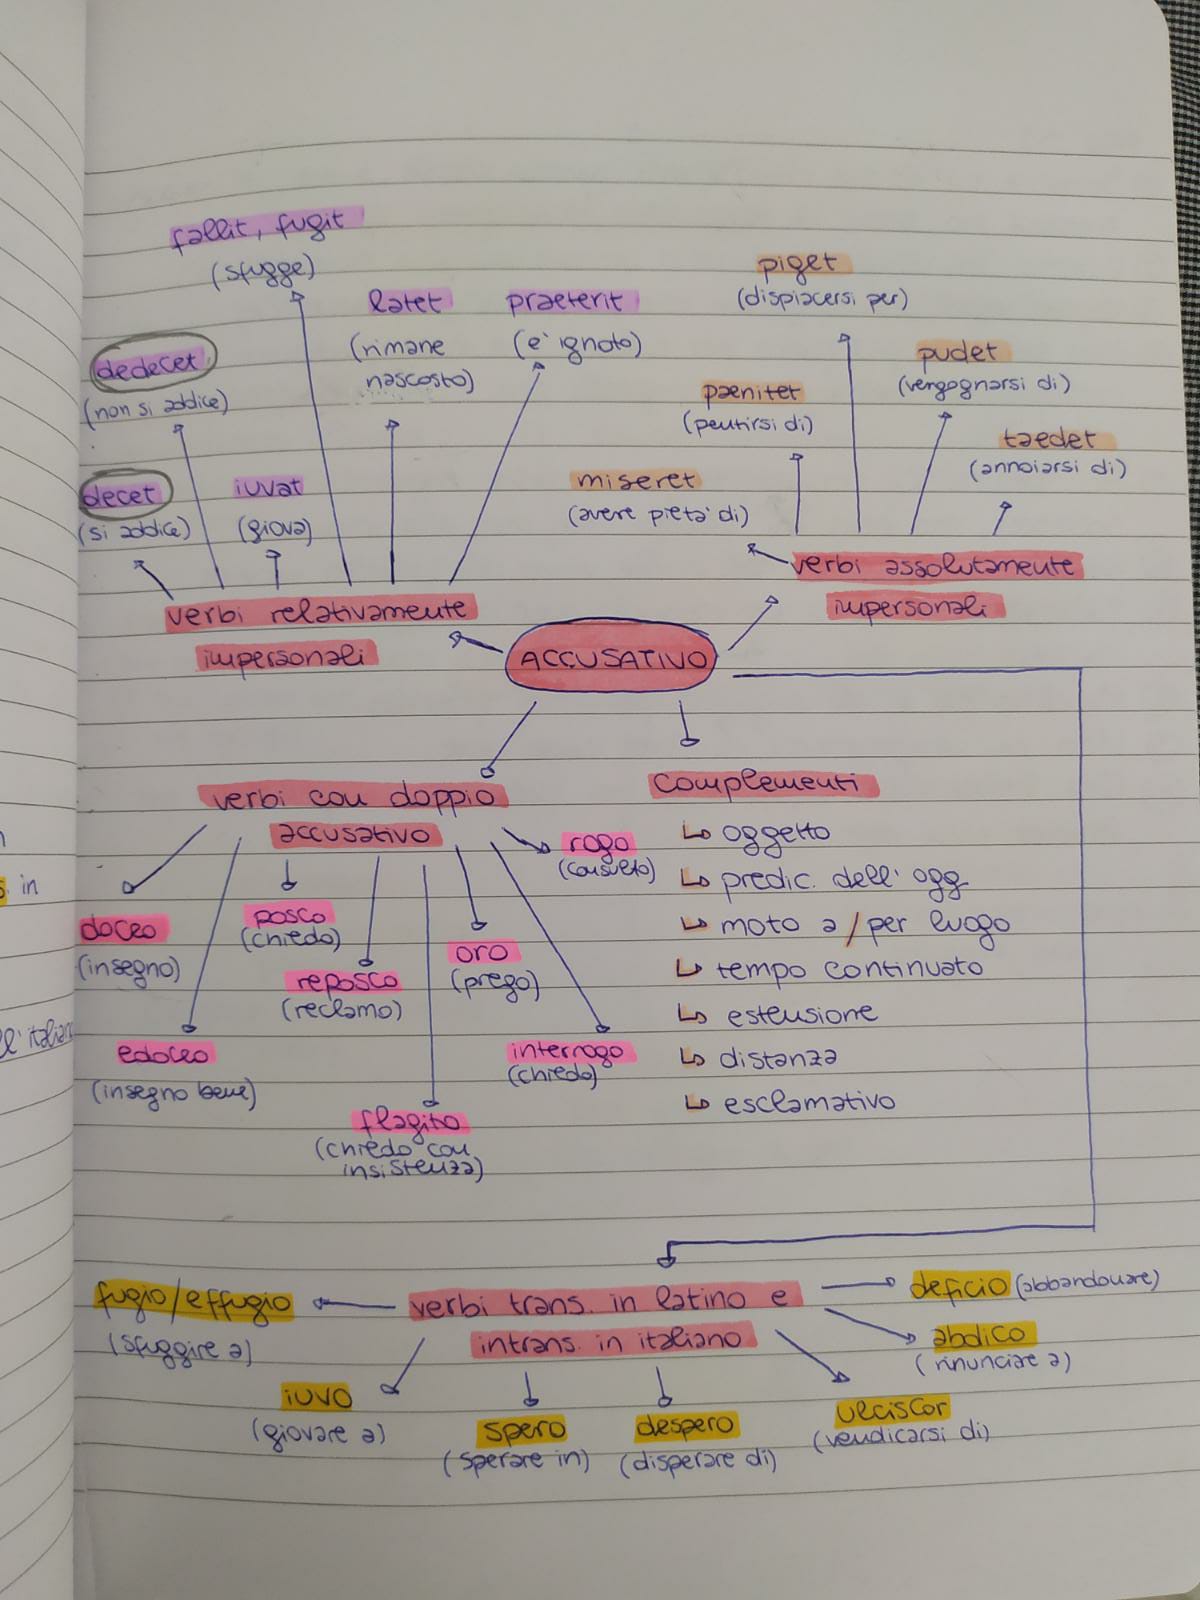 fallit, fugit
(sfugge)
latet
(rimane
nascosto)
praeterit
(e' ignoto)
piget
(dispiacersi per)
dedecet
(non si addice)
pudet
(vergognarsi di)
paenitet
(pentirsi di)
taedet
(annoiarsi di)
decet
(si addice)
iuvat
(giova)
miseret
(avere pieta' di)
verbi relativamente
impersonali
verbi assolutamente
impersonali
ACCUSATIVO
verbi con doppio
accusativo
doceo
(insegno)
edoceo
(insegno bene)
posco
(chiedo)
reposco
(reclamo)
flagito
(chiedo con
insistenza)
oro
(prego)
interrogo
(chiedo)
rogo
(consulto)
complementi
↳ oggetto
↳ predic. dell' ogg.
↳ moto a/per luogo
↳ tempo continuato
↳ estensione
↳ distanza
↳ esclamativo
verbi trans. in latino e
intrans. in italiano
fugio/effugio
(sfuggire a)
iuvo
(giovare a)
spero
(sperare in)
despero
(disperare di)
ulciscor
(vendicarsi di)
abdico
(rinunciare a)
deficio (abbandonare)
in
l'italian